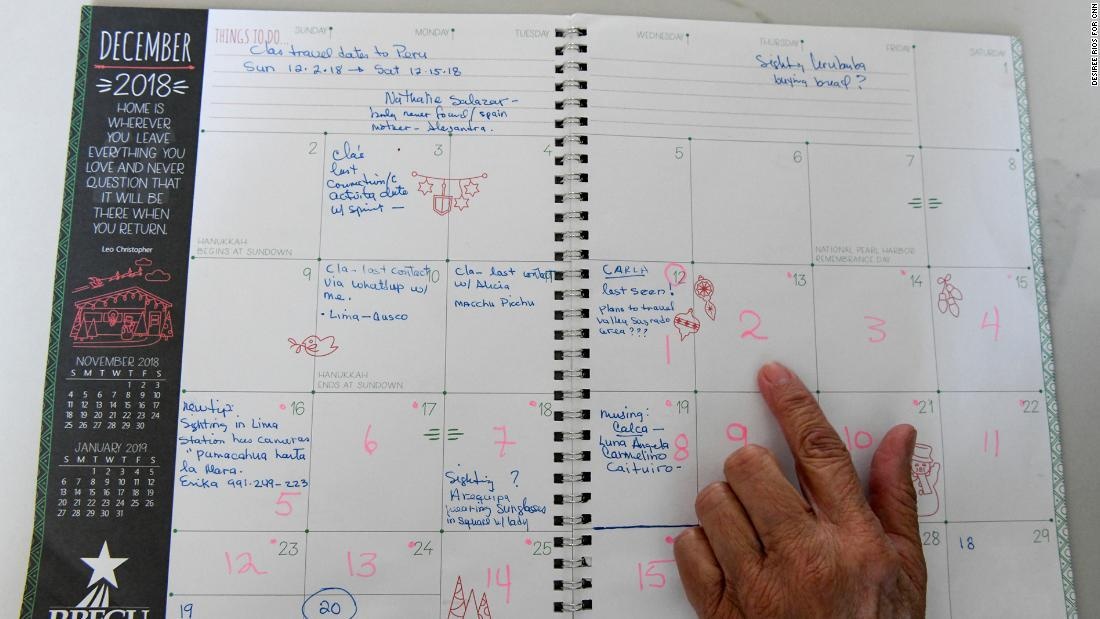 DESIREE RIOS FOR CNN
DECEMBER
2018
HOME IS
WHEREVER
YOU LEAVE
EVERYTHING YOU
LOVE AND NEVER
QUESTION THAT
IT WILL BE
THERE WHEN
YOU RETURN.
Leo Christopher
NOVEMBER 2018
S M T W T F S
1 2 3
4 5 6 7 8 9 10
11 12 13 14 15 16 17
18 19 20 21 22 23 24
25 26 27 28 29 30
JANUARY 2019
S M T W T F S
1 2 3 4 5
6 7 8 9 10 11 12
13 14 15 16 17 18 19
20 21 22 23 24 25 26
27 28 29 30 31
THINGS TO DO...
SUNDAY
MONDAY
TUESDAY
WEDNESDAY
THURSDAY
FRIDAY
SATURDAY
travel dates to Peru
Sun 12.2.18 → Sat 12.15.18
Nathalie Salazar -
body never found / spain
mother - Alejandra.
Sighting Urubamba
buying bread?
1
2
HANUKKAH
BEGINS AT SUNDOWN
3
last
activity date
w/ sprint —
4
5
6
7
NATIONAL PEARL HARBOR
REMEMBRANCE DAY
8
9
10
Cla- last contact
via whatsup w/
me.
• Lima - Cusco
HANUKKAH
ENDS AT SUNDOWN
Cla- last contact
w/ Alicia
Macchu Picchu
12
CARLA
last seen!
plans to travel
Valley Sagrado
area???
1
13
2
14
3
15
4
16
new tip:
Sighting in Lima
Station has cameras
"pumacahua hasta
la Mara.
Erika 991-249-223
5
17
6
18
7
Sighting ?
Arequipa
wearing Sunglasses
in Square w/ lady
19
missing:
Calca —
Luna Angela
Carmelino
Caituiro-
8
9
21
10
22
11
23
12
24
13
25
14
15
28
18
29
19
20